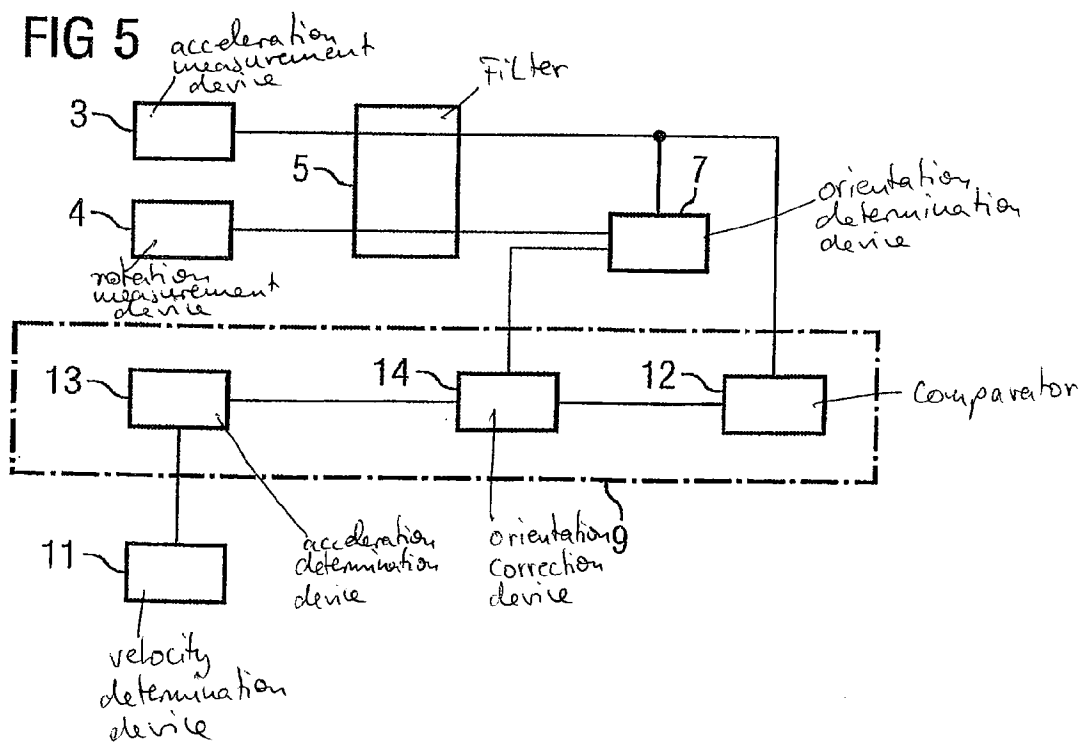 FIG 5
acceleration
measurement
device
Filter
3
5
7
4
orientation
determination
device
rotation
measurement
device
13
14
12
comparator
11
acceleration
determination
device
orientation
correction
device
9
velocity
determination
device